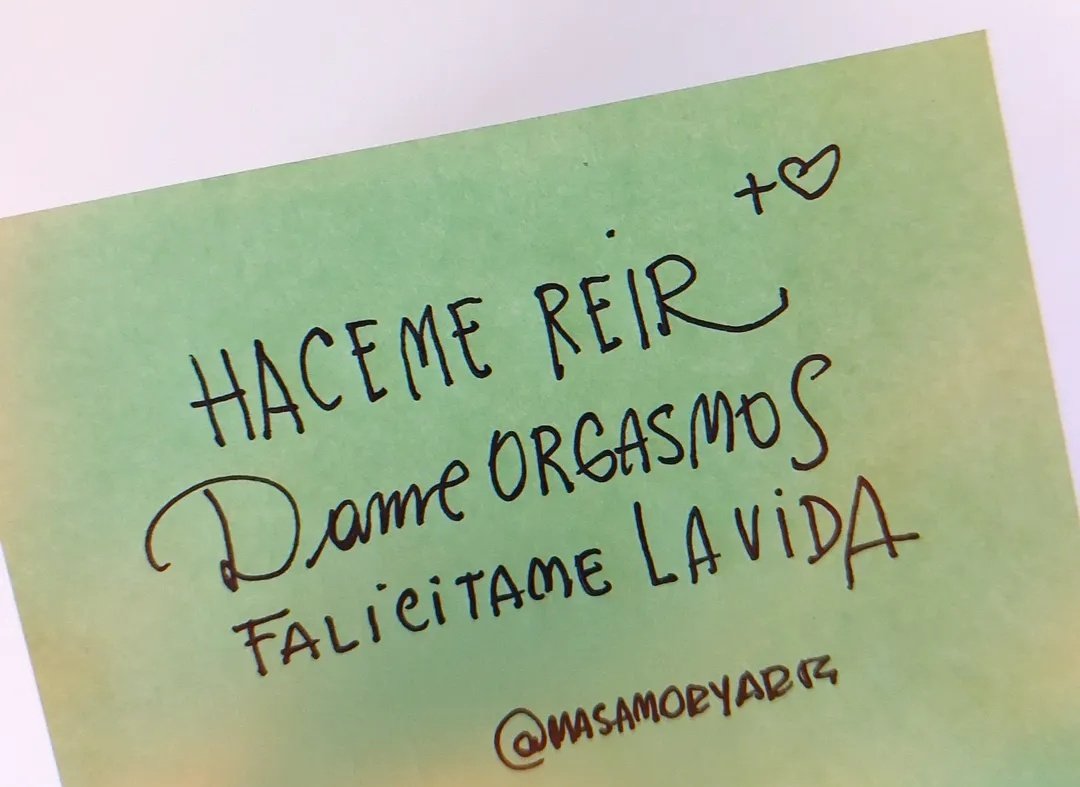 +♡
HACEME REÍR
Dame ORGASMOS
FALICITAME LA VIDA
@MASAMORYARTE